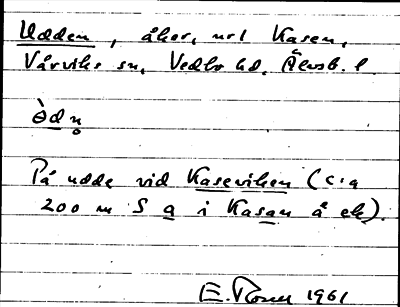 Udden, åker, nr 1 Kasen,
Vårviks sn, Vedbo hd, Älvsb. l.
Òdn̥
På udde vid Kaseviken (c:a
200 m S a i Kasan å ek).
E. Rosell 1961